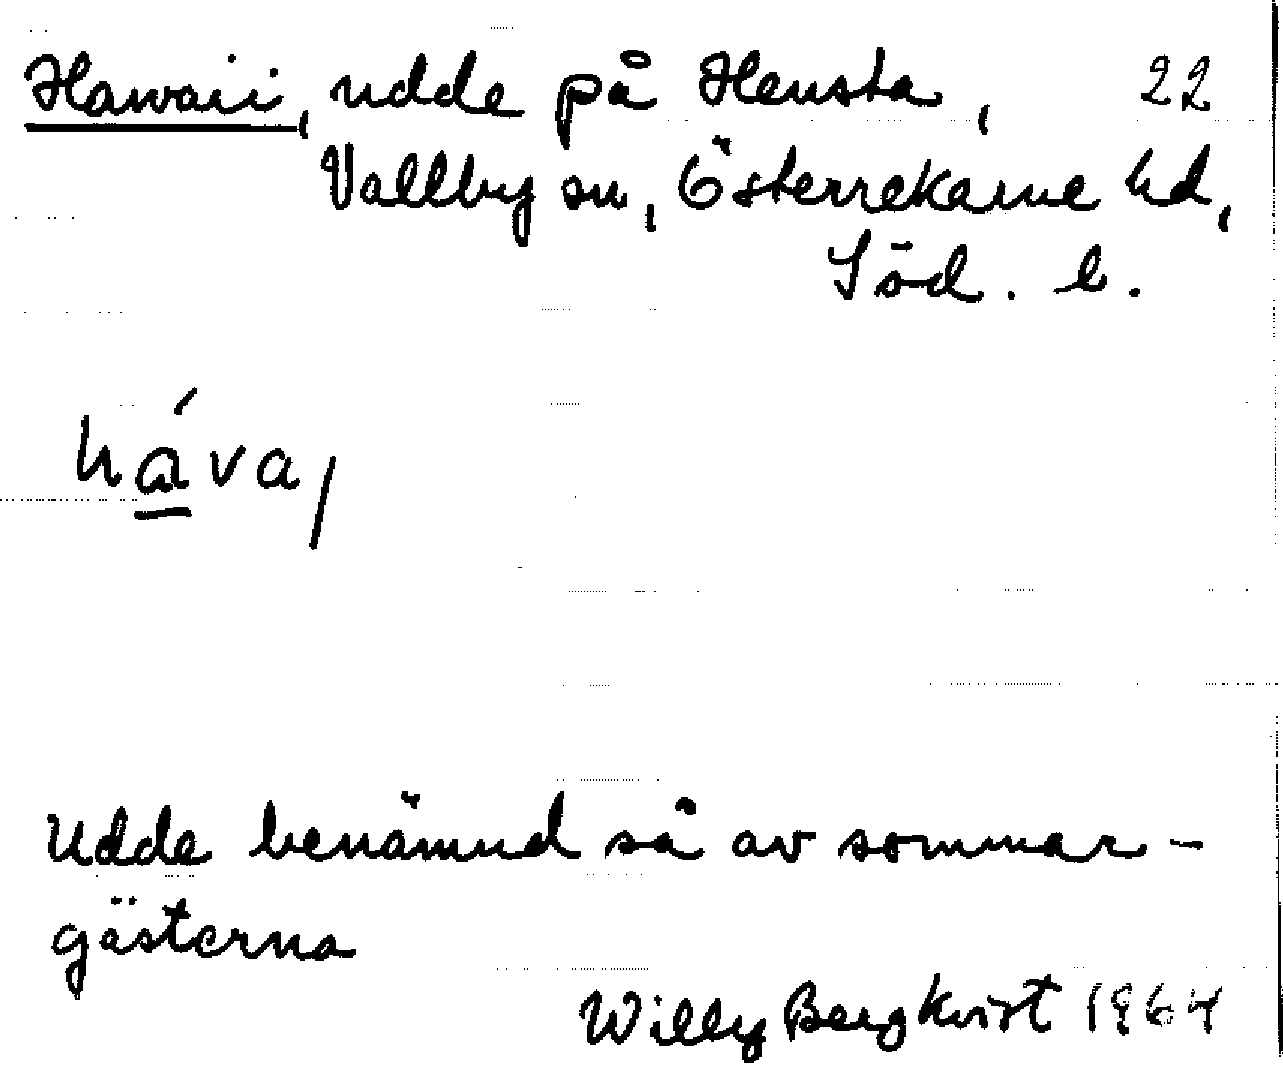 Hawaii, udde på Hensta, 22
Vallby sn, Österrekarne hd,
Söd. l.
háva/
Udde benämnd så av sommar-
gästerna
Willy Bergkvist 1964